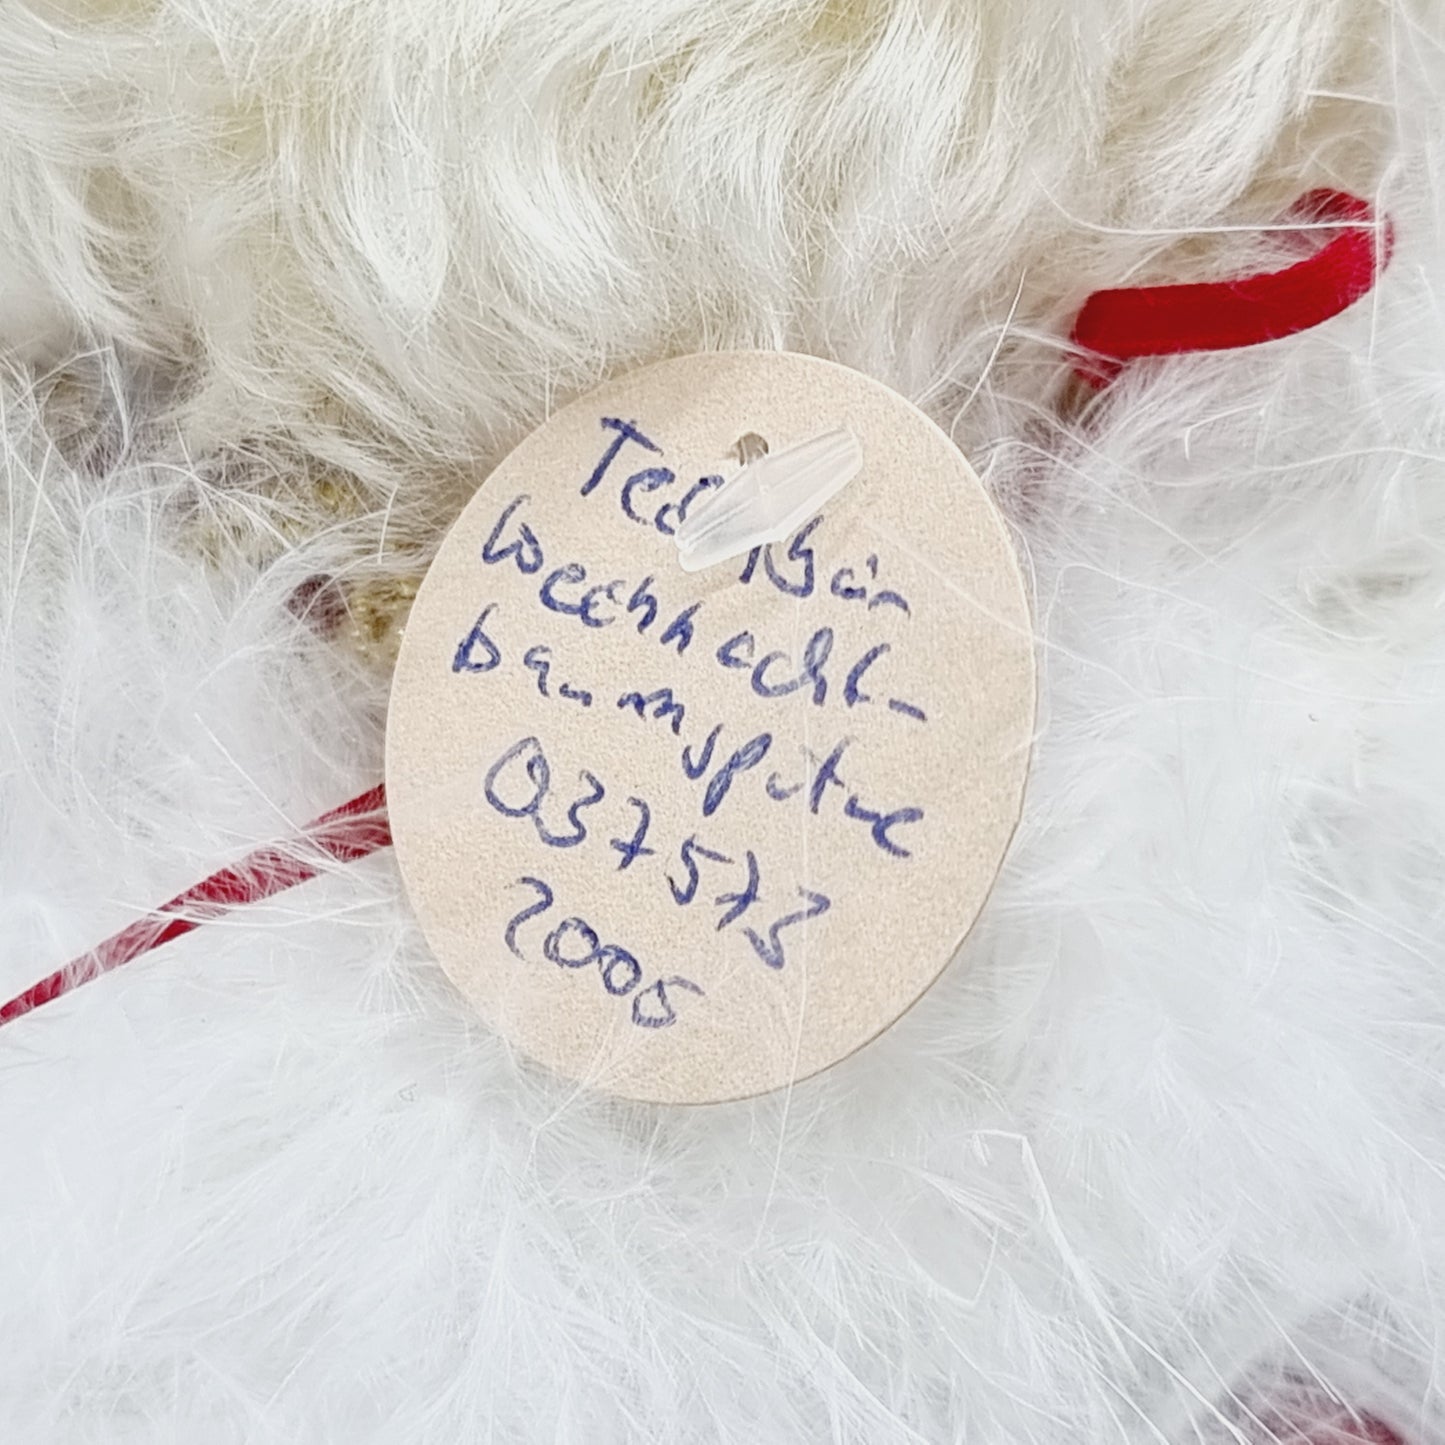 Teddy Bär
Weihnacht-
baumspitze
037573
2006